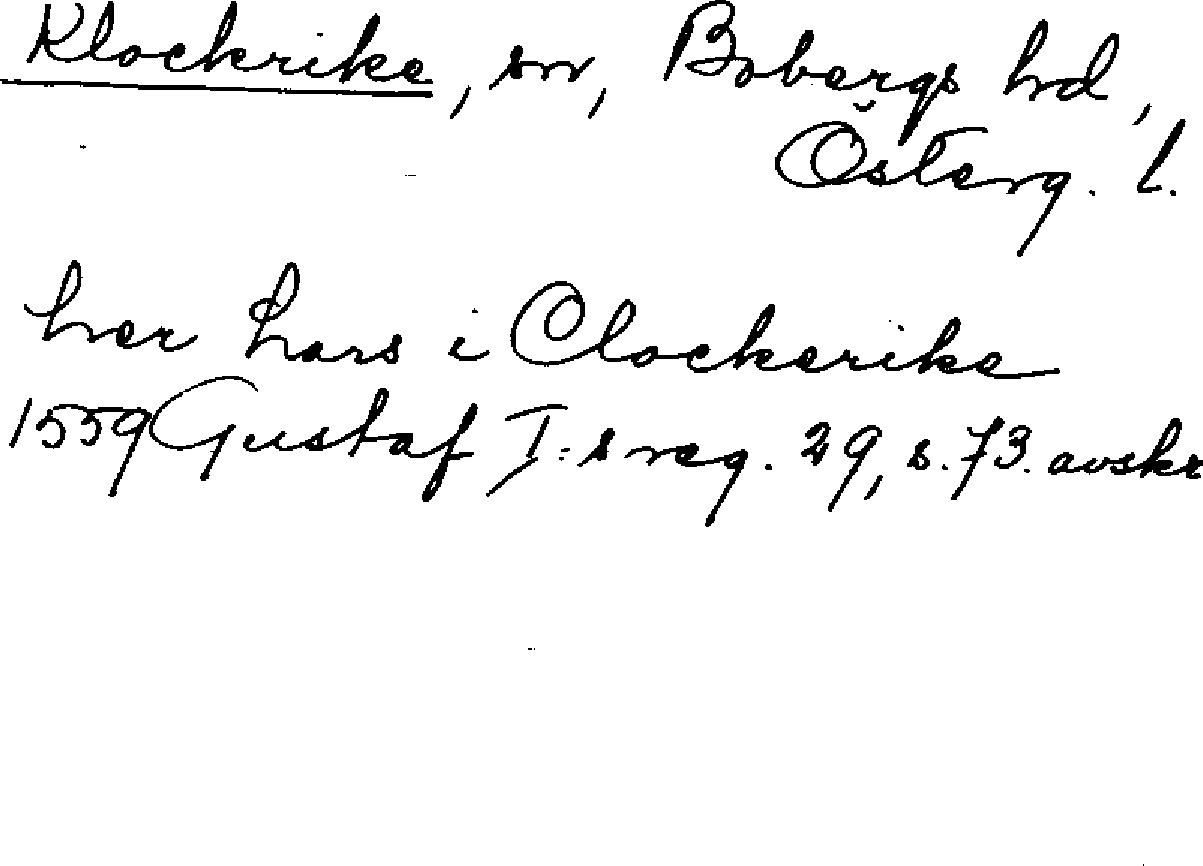 Klockrike, sn, Bobergs hd,
Österg. l.
her Lars i Clockerike
1559 Gustaf I:s reg. 29, s. 73. avskr